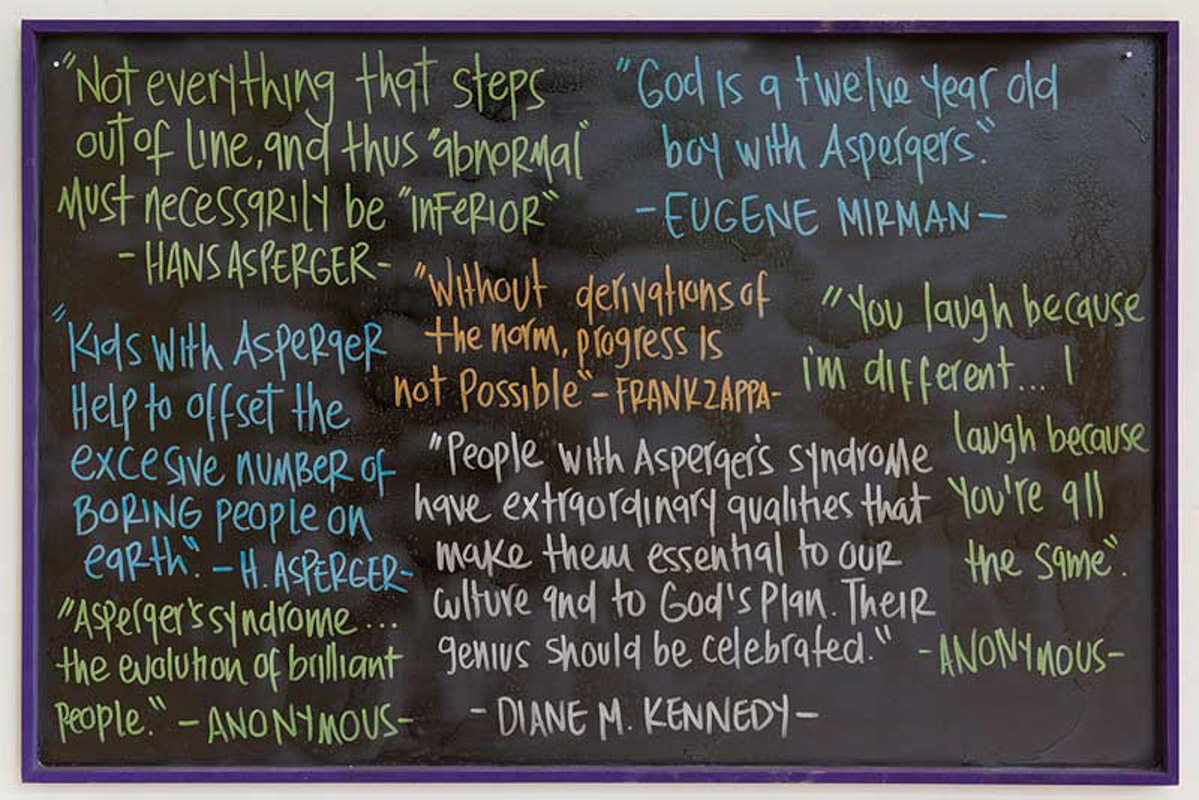 "Not everything that steps
out of line, and thus "abnormal"
Must necessarily be "inferior"
- HANS ASPERGER -
"God is a twelve year old
boy with Aspergers."
- EUGENE MIRMAN -
"Without derivations of
the norm, progress is
not Possible" - FRANK ZAPPA -
"You laugh because
i'm different... I
laugh because
You're all
the same".
- ANONYMOUS -
"Kids with Asperger
Help to offset the
excesive number of
BORING people on
earth". - H. ASPERGER -
"People with Asperger's syndrome
have extraordinary qualities that
make them essential to our
culture and to God's Plan. Their
genius should be celebrated."
- DIANE M. KENNEDY -
"Asperger's syndrome ...
the evolution of brilliant
People." - ANONYMOUS -